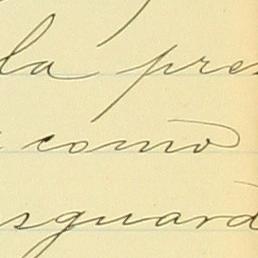 la pre
como
sguard